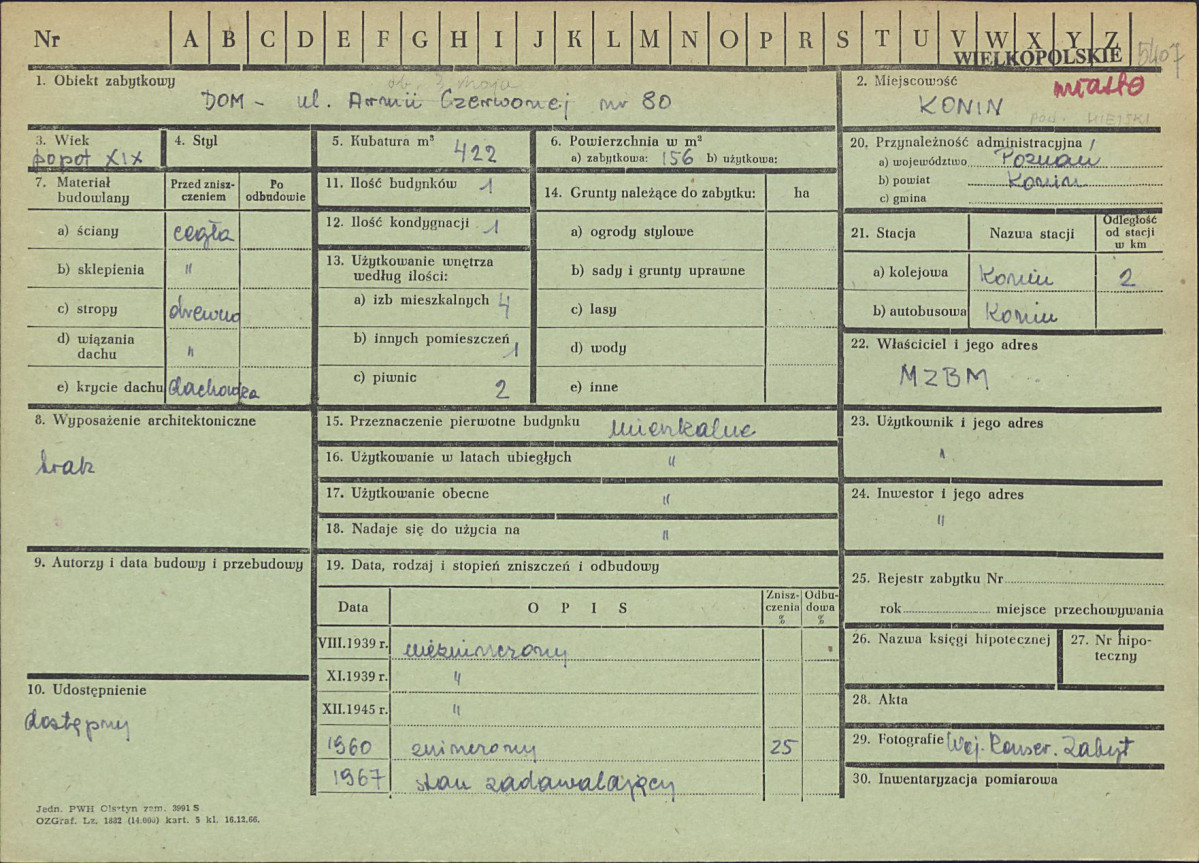 Nr A B C D E F G H I J K L M N O P R S T U V W X Y Z
WIELKOPOLSKIE 5407
1. Obiekt zabytkowy
ob. 3 maja
DOM - ul. Armii Czerwonej nr 80
2. Miejscowość miasto
KONIN
pow. MIEJSKI
3. Wiek
popoł XIX
4. Styl
5. Kubatura m³ 422
6. Powierzchnia w m²
a) zabytkowa: 156 b) użytkowa:
20. Przynależność administracyjna /
a) województwo Poznań
b) powiat Konin
c) gmina
7. Materiał budowlany
Przed zniszczeniem
Po odbudowie
a) ściany cegła
b) sklepienia "
c) stropy drewno
d) wiązania dachu "
e) krycie dachu dachówka
11. Ilość budynków 1
12. Ilość kondygnacji 1
13. Użytkowanie wnętrza według ilości:
a) izb mieszkalnych 4
b) innych pomieszczeń 1
c) piwnic 2
14. Grunty należące do zabytku: ha
a) ogrody stylowe
b) sady i grunty uprawne
c) lasy
d) wody
e) inne
21. Stacja Nazwa stacji Odległość od stacji w km
a) kolejowa Konin 2
b) autobusowa Konin
22. Właściciel i jego adres
MZBM
8. Wyposażenie architektoniczne
brak
15. Przeznaczenie pierwotne budynku mieszkalne
16. Użytkowanie w latach ubiegłych "
17. Użytkowanie obecne "
18. Nadaje się do użycia na "
23. Użytkownik i jego adres
"
24. Inwestor i jego adres
"
9. Autorzy i data budowy i przebudowy
10. Udostępnienie
dostępny
19. Data, rodzaj i stopień zniszczeń i odbudowy
Data OPIS Zniszczenia % Odbudowa %
VIII.1939 r. niezniszczony
XI.1939 r. "
XII.1945 r. "
1960 zniszczony 25
1967 stan zadawalający
25. Rejestr zabytku Nr
rok miejsce przechowywania
26. Nazwa księgi hipotecznej
27. Nr hipoteczny
28. Akta
29. Fotografie Woj. Konser. Zabyt
30. Inwentaryzacja pomiarowa
Jedn. PWH Olsztyn zam. 3991 S
OZGraf. Lz. 1832 (14.000) kart. 5 kl. 16.12.66.